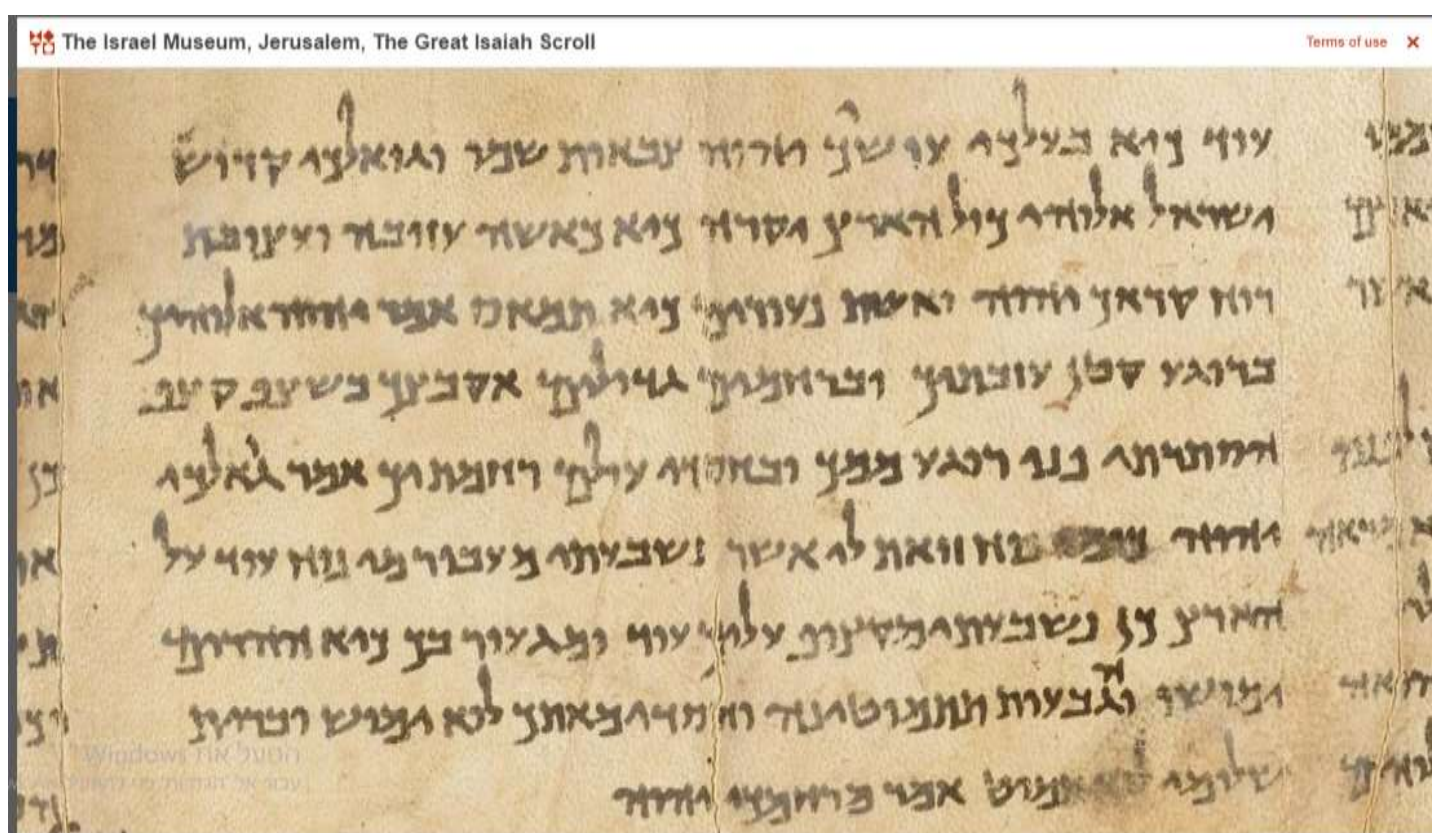 The Israel Museum, Jerusalem, The Great Isaiah Scroll
Terms of use
עוד כיא בעלכי עושכי יהוה צבאות שמו וגואלכי קדוש
ישראל אלוהי כול הארץ יקרה כיא כאשה עזובה ועצובת
רוח קראך יהוה ואשת נעורים כיא תמאס אמר יהוה אלוהיך
ברוגע קטן עזבתיך וברחמים גדולים אקבצך בשצף קצף
הסתרתי פני רוגע ממך ובחסדי עולם רחמתיך אמר גואלכי
יהוה כימי נוח זואת לי אשר נשבעתי מעבור מי נוח עוד על
הארץ כן נשבעתי מקצוף עליך עוד ומגעור בך כיא ההרים
ימושו והגבעות תתמוטינה וחסדי מאתך לוא ימוש וברית
שלומי לוא תמוט אמר מרחמכי יהוה
הפעל את Windows